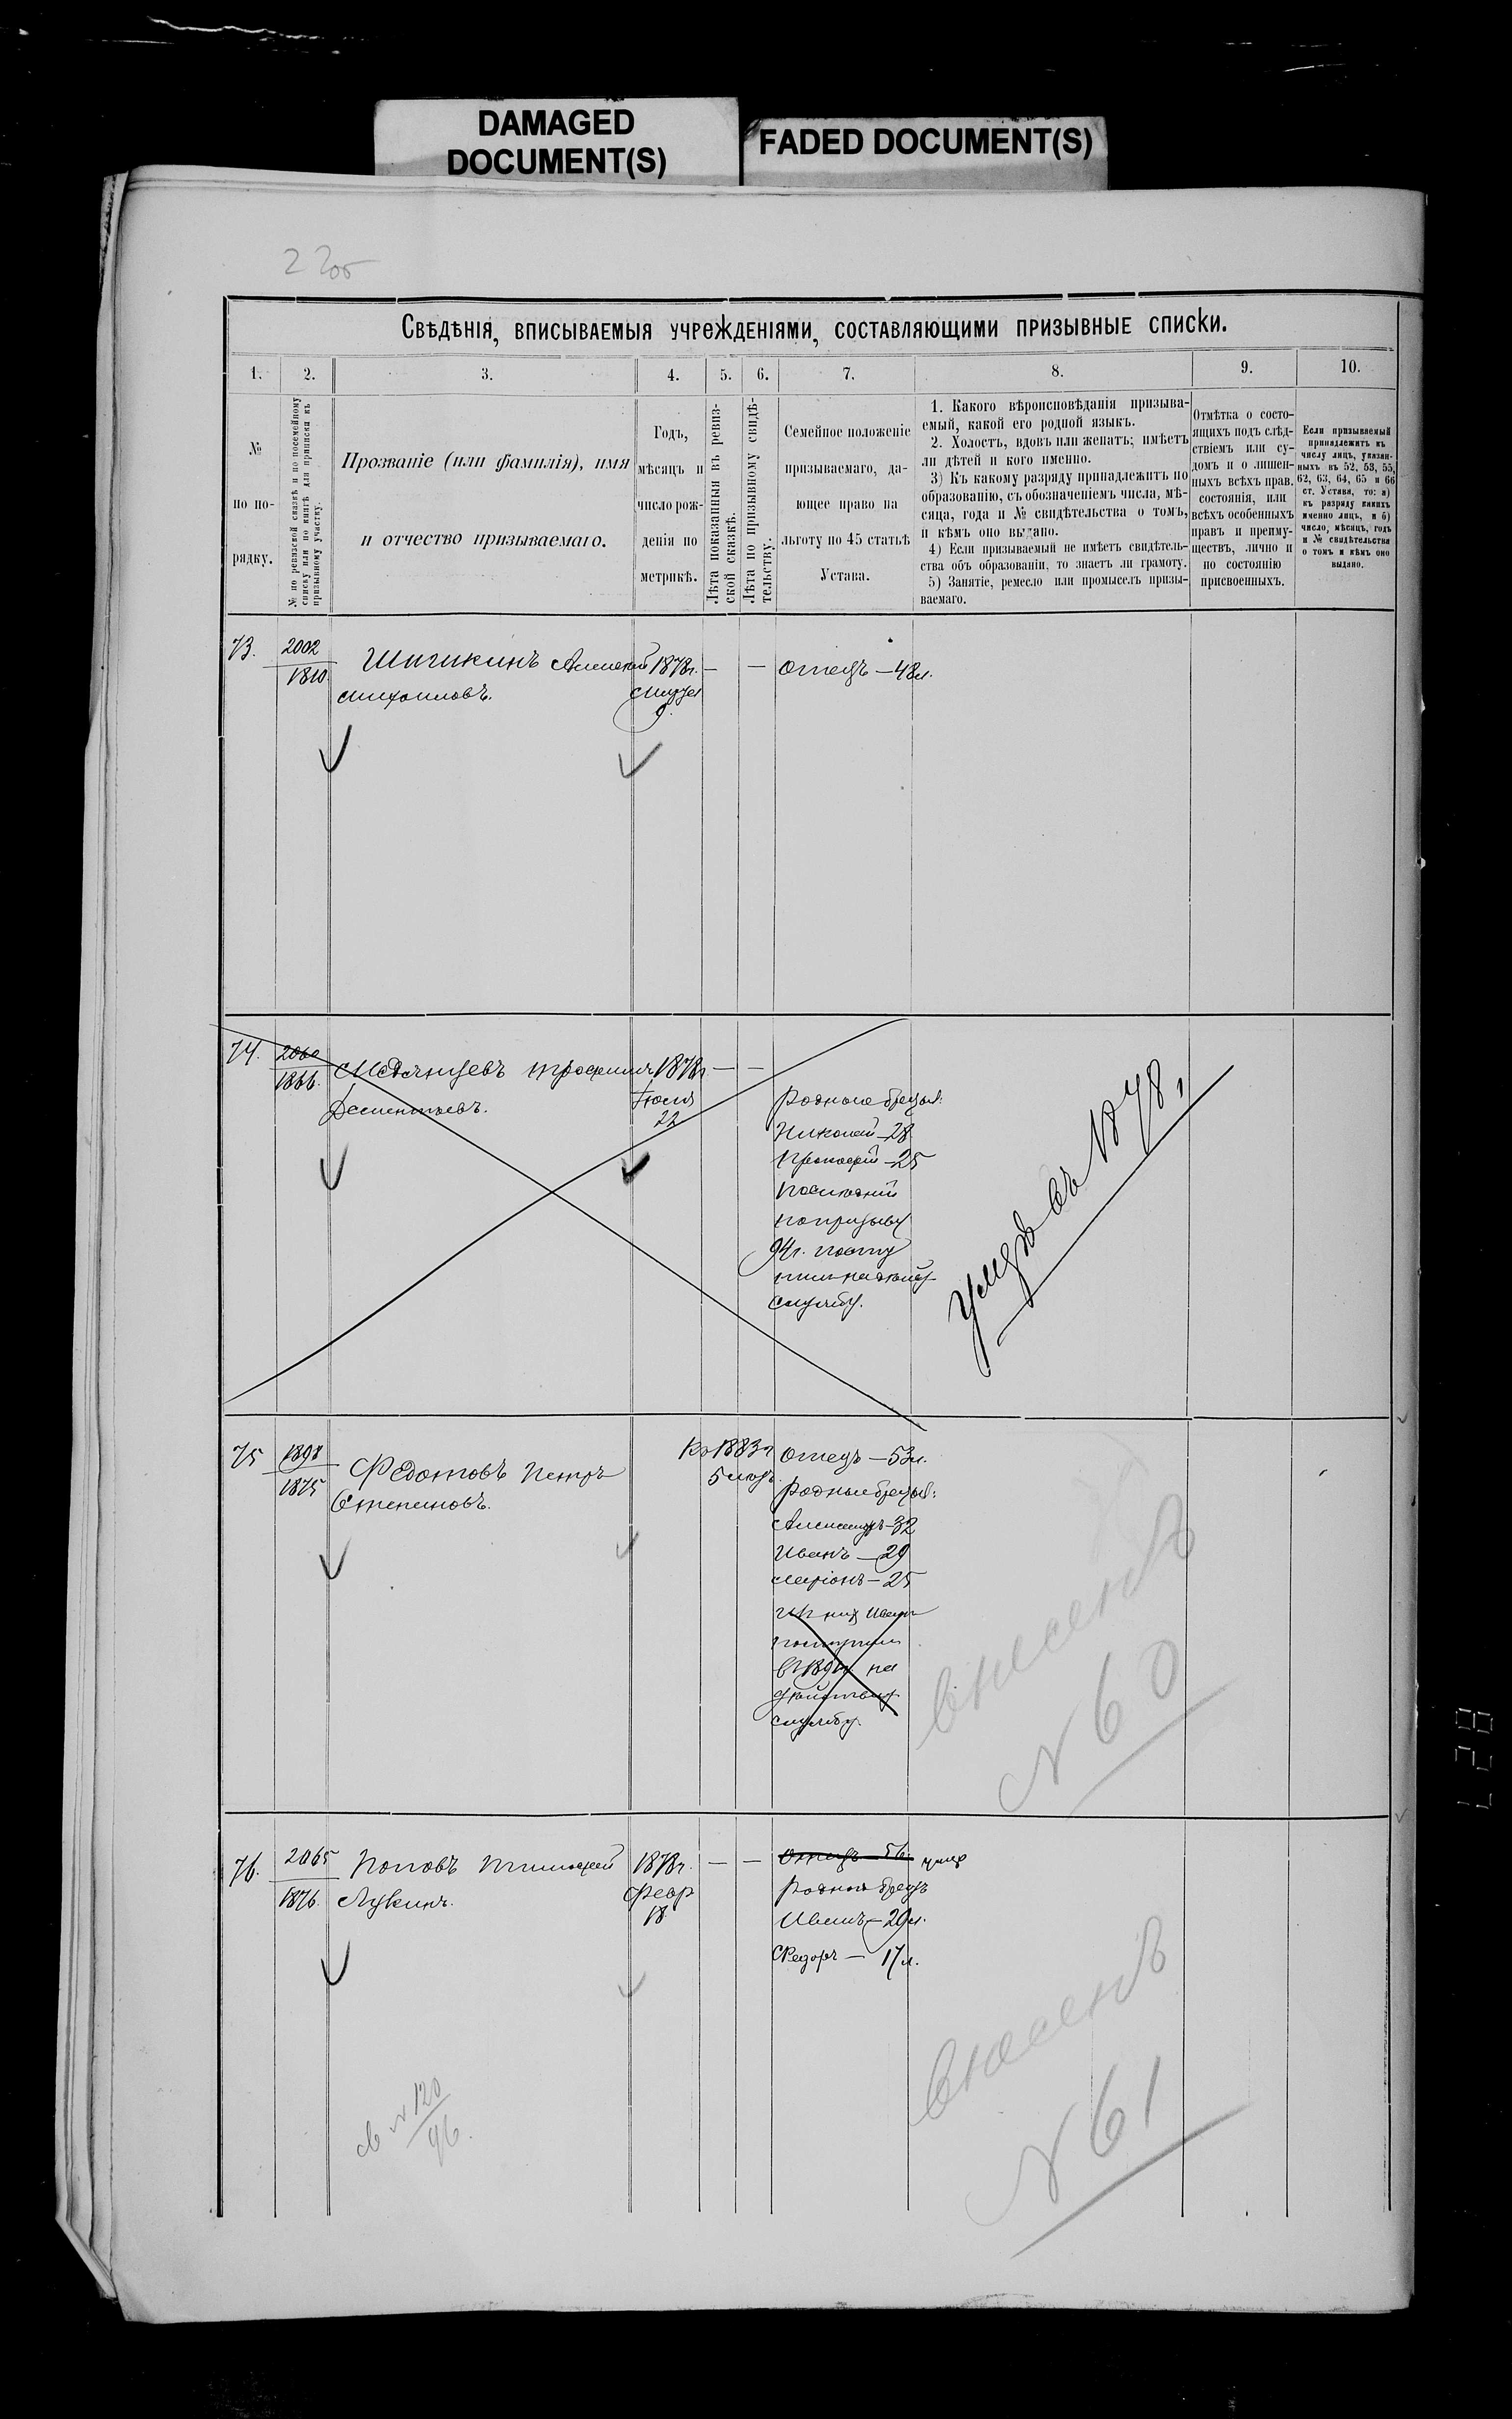 DAMAGED
DOCUMENT(S)
FADED DOCUMENT(S)
22об
Свѣдѣнія, вписываемыя учрежденіями, составляющими призывные списки.
1. 2. 3. 4. 5. 6. 7. 8. 9. 10.
№
по по-
рядку.
№ по ревизской сказкѣ и по посемейному
списку или по книгѣ для приписки къ
призывному участку.
Прозваніе (или фамилія), имя
и отчество призываемаго.
Годъ,
мѣсяцъ и
число рож-
денія по
метрикѣ.
Лѣта показанныя въ ревиз-
ской сказкѣ.
Лѣта по призывному свидѣ-
тельству.
Семейное положеніе
призываемаго, да-
ющее право на
льготу по 45 статьѣ
Устава.
1. Какого вѣроисповѣданія призыва-
емый, какой его родной языкъ.
2. Холостъ, вдовъ или женатъ; имѣетъ
ли дѣтей и кого именно.
3) Къ какому разряду принадлежитъ по
образованію, съ обозначеніемъ числа, мѣ-
сяца, года и № свидѣтельства о томъ,
и кѣмъ оно выдано.
4) Если призываемый не имѣетъ свидѣтель-
ства объ образованіи, то знаетъ ли грамоту.
5) Занятіе, ремесло или промыселъ призы-
ваемаго.
Отмѣтка о состо-
ящихъ подъ слѣд-
ствіемъ или су-
домъ и о лишен-
ныхъ всѣхъ прав.
состоянія, или
всѣхъ особенныхъ
правъ и преиму-
ществъ, лично и
по состоянію
присвоенныхъ.
Если призываемый
принадлежитъ къ
числу лицъ, указан-
ныхъ въ 52, 53, 55,
62, 63, 64, 65 и 66
ст. Устава, то: а)
къ разряду какихъ
именно лицъ, и б)
число, мѣсяцъ, годъ
и № свидѣтельства
о томъ и кѣмъ оно
выдано.
73. 2002 Шишкинъ Алексѣй 1878г. — — Отецъ — 48л.
1810. Михаиловъ.
9
74. 2060 Медянцевъ Трофимъ 1878г — —
1866. Дементьевъ. Іюля
22
Родные братья:
Николай — 28
Прокофій — 25
Послѣдній
по призыву
94г. посту
пилъ на дѣйст
службу.
Умеръ въ 1878г
75 1898 Федотовъ Петръ Къ 1883г Отецъ — 53л.
1875 Степановъ. 5 мѣсъ.
Родные братья:
Александръ — 32
Иванъ — 29
Ларіонъ — 25
Изъ нихъ Иванъ
поступилъ
въ на
дѣйствит
службу.
внесенъ
№ 60
76. 2065 Поповъ Тимофей 1878г. — — Отецъ — 56 умеръ
1876. Лукинъ. Февр
18
Родные братъ
Иванъ — 29л.
Федоръ — 17л.
св № 120
96.
внесенъ
№ 61
827